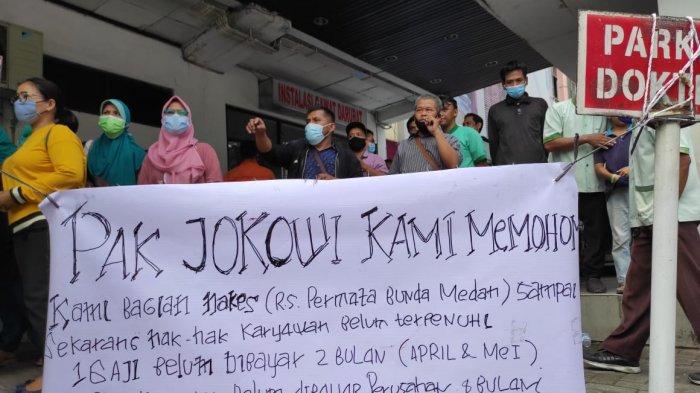 INSTALASI GAWAT DARURAT
PARK
DOKT
PAK JOKOWI KAMI MEMOHON
Kami BAGIAN nakes (R.S. Permata Bunda Medan) sampai
sekarang hak-hak Karyawan Belum terpenuhi
1 GAJI Belum DiBAYAR 2 BULAN (APRIL & MEI)
Belum diBayar Perusahan 8 BULAN